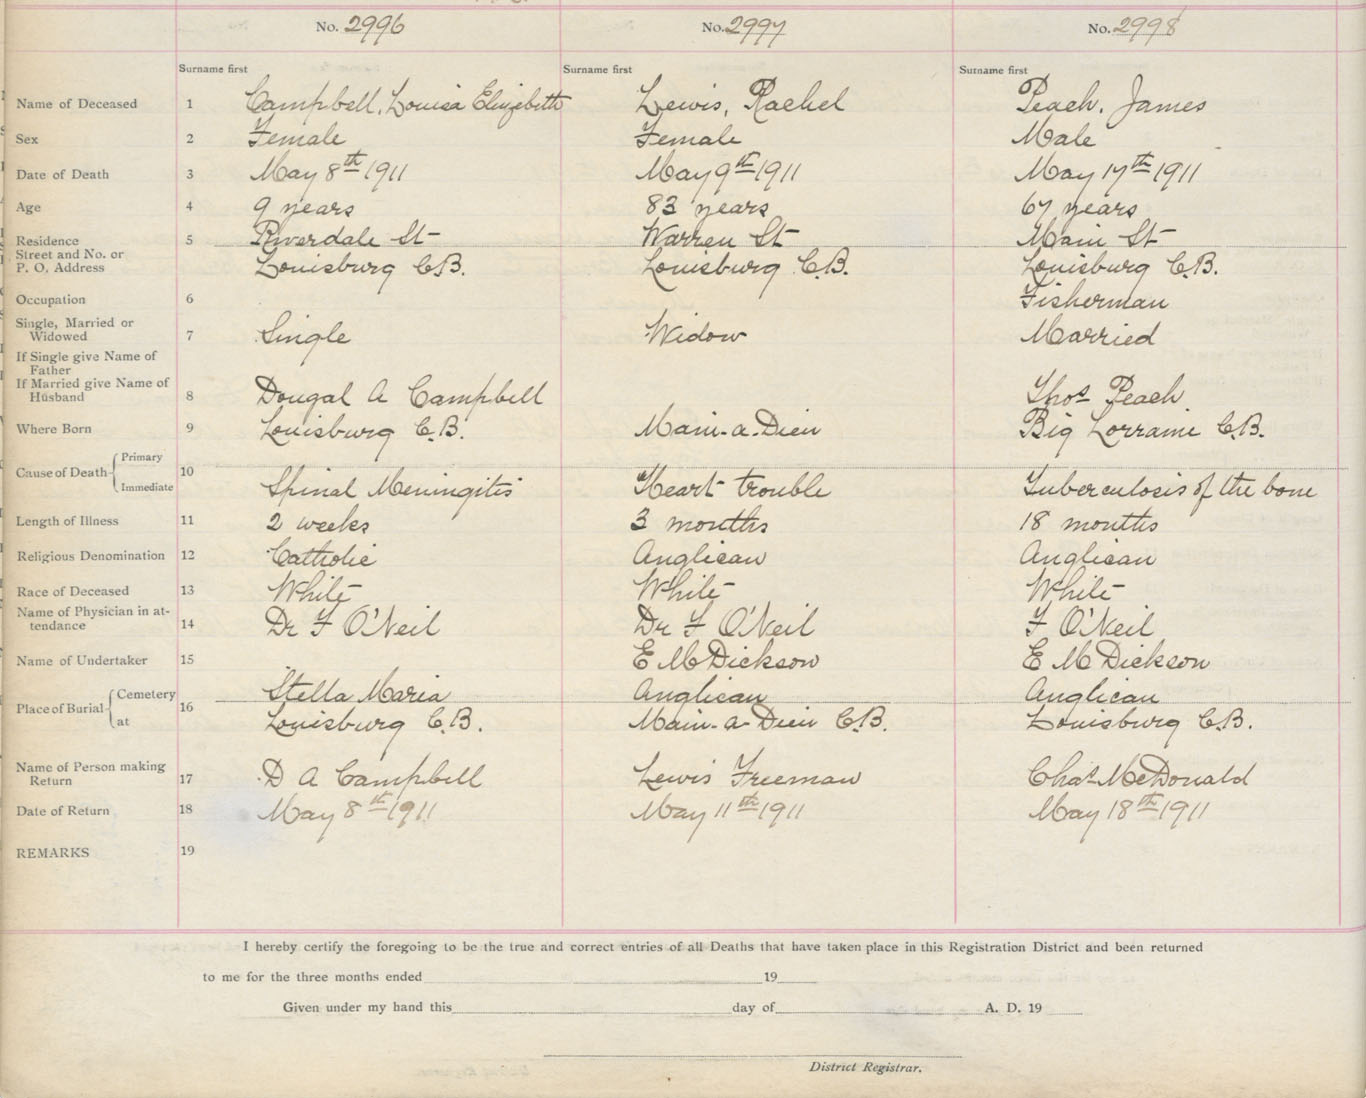 No. 2996 No. 2997 No. 2998
Surname first Surname first Surname first
Name of Deceased 1 Campbell, Louisa Elizebeth Lewis, Rachel Peach, James
Sex 2 Female Female Male
Date of Death 3 May 8th 1911 May 9th 1911 May 17th 1911
Age 4 9 years 83 years 67 years
Residence 5 Riverdale St Warren St Main St
Street and No. or
P. O. Address Louisburg C.B. Louisburg C.B. Louisburg C.B.
Occupation 6 Fisherman
Single, Married or
Widowed 7 Single Widow Married
If Single give Name of
Father
If Married give Name of
Husband 8 Dougal A Campbell Thos Peach
Where Born 9 Louisburg C.B. Main-a-Dieu Big Lorraine C.B.
Cause of Death Primary 10
Immediate Spinal Meningitis Heart trouble Tuberculosis of the bone
Length of Illness 11 2 weeks 3 months 18 months
Religious Denomination 12 Catholic Anglican Anglican
Race of Deceased 13 White White White
Name of Physician in at-
tendance 14 Dr F O'Neil Dr F O'Neil F O'Neil
Name of Undertaker 15 E M Dickson E M Dickson
Place of Burial Cemetery 16 Stella Maria Anglican Anglican
at Louisburg C.B. Main-a-Dieu C.B. Louisburg C.B.
Name of Person making
Return 17 D A Campbell Lewis Freeman Chas McDonald
Date of Return 18 May 8th 1911 May 11th 1911 May 18th 1911
REMARKS 19
I hereby certify the foregoing to be the true and correct entries of all Deaths that have taken place in this Registration District and been returned
to me for the three months ended 19
Given under my hand this day of A. D. 19
District Registrar.